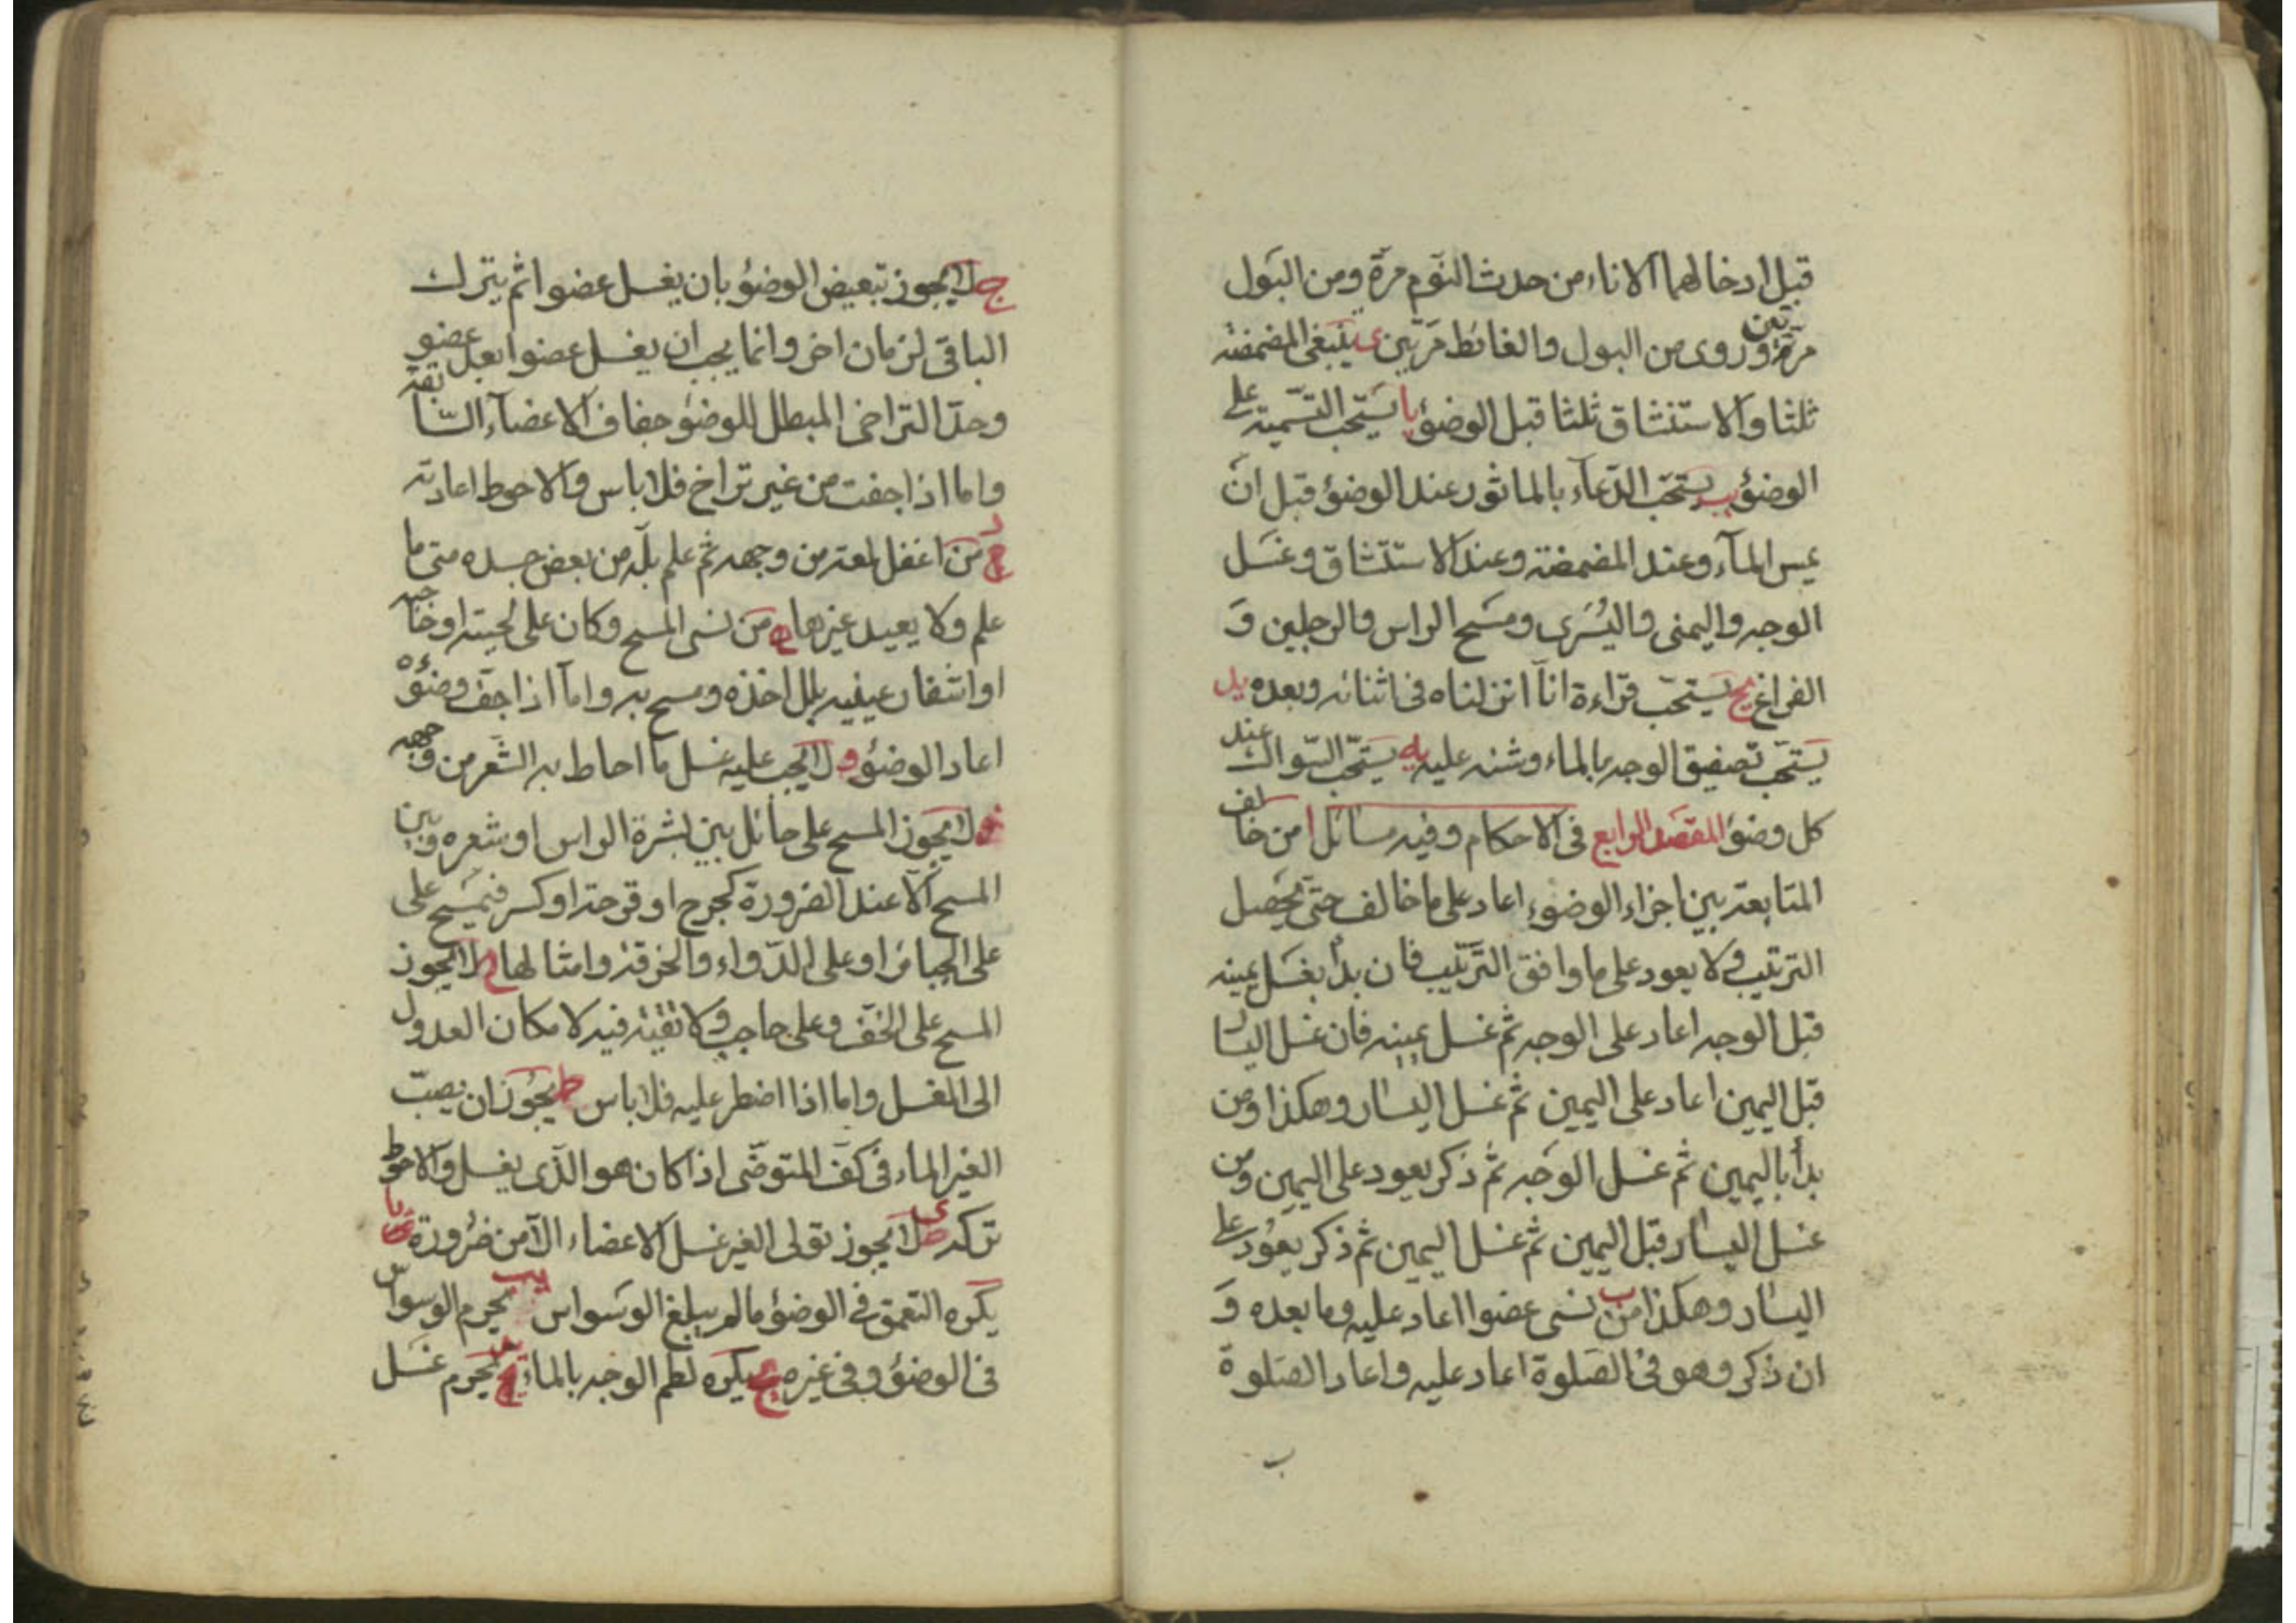 قبل ادخالهما الاناء من حدث النوم مرة ومن البول
مرتين وروى من البول والغائط مرتين ى ينبغى المضمضة
ثلثا والاستنشاق ثلثا قبل الوضوء يا يستحب التسمية على
الوضوء يب يستحب الدعاء بالماثور عند الوضوء قبل ان
يمس الماء وعند المضمضة وعند الاستنشاق وغسل
الوجه واليمنى واليسرى ومسح الراس والرجلين و
الفراغ يج يستحب قراءة انا انزلناه فى اثنائه وبعده يد
يستحب تصفيق الوجه بالماء وشنه عليه يه يستحب السواك عند
كل وضوء المقصد الرابع فى الاحكام وفيه مسائل ا من خالف
المتابعة بين اجزاء الوضوء اعاد على ما خالف حتى يحصل
الترتيب ولا يعود على ما وافق الترتيب فان بدأ بغسل يمينه
قبل الوجه اعاد على الوجه ثم غسل يمينه فان غسل اليسار
قبل اليمين اعاد على اليمين ثم غسل اليسار وهكذا ومن
بدأ باليمين ثم غسل الوجه ثم ذكر يعود على اليمين ومن
غسل اليسار قبل اليمين ثم غسل اليمين ثم ذكر يعود على
اليسار وهكذا ب من نسى عضوا اعاد عليه وما بعده و
ان ذكر وهو فى الصلوة اعاد عليه واعاد الصلوة
ج لا يجوز تبعيض الوضوء بان يغسل عضوا ثم يترك
الباقى لزمان اخر وانما يجب ان يغسل عضوا بعد عضو
وحد التراخى المبطل للوضوء جفاف الاعضاء السابقة
واما اذا جفت من غير تراخ فلا باس والاحوط اعادته
د من اغفل لمعة من وجهه ثم علم بله من بعض جسده متى ما
علم ولا يعيد غيرها ه من نسى المسح وكان على لحيته او حاجبه
او اشفار عينيه بلل اخذه ومسح به واما اذا جف وضوئه
اعاد الوضوء و لا يجب عليه غسل ما احاط به الشعر من وجهه
ز لا يجوز المسح على حائل بين بشرة الراس او شعره وبين
المسح الا عند الضرورة كجرح او قرحة او كسر فيمسح على
على الجبائر او على الدواء والخرقة وامثالها ح لا يجوز
المسح على الخف وعلى حاجب ولا تقية فيه لامكان العدول
الى الغسل واما اذا اضطر عليه فلا باس ط يجوز ان يصب
الغير الماء فى كف المتوضى اذا كان هو الذى يغسل والاحوط
تركه ى لا يجوز تولى الغير غسل الاعضاء الا من ضرورة يا
يكره التعمق فى الوضوء ما لم يبلغ الوسواس يب يحرم الوسواس
فى الوضوء وفى غيره يج يكره لطم الوجه بالماء يد يحرم غسل
ب